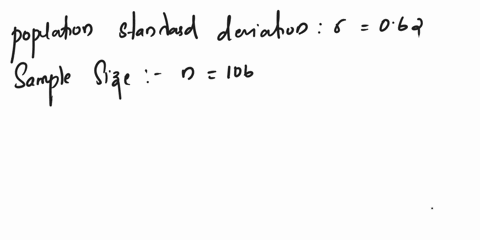 population standard deviation : σ = 0.62
Sample Size :- n = 106